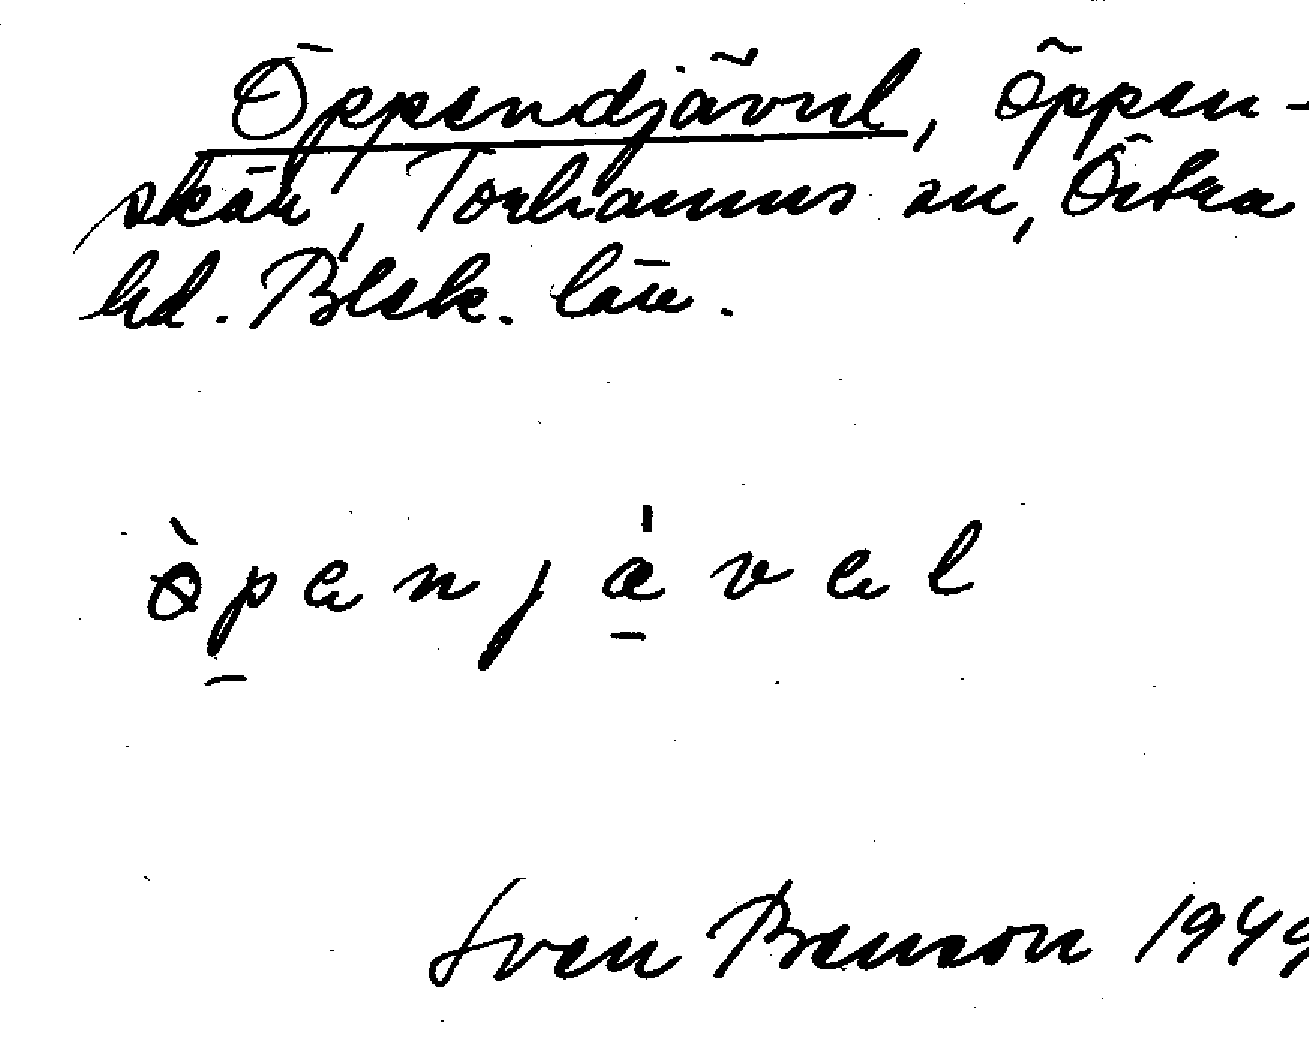 Öppendjävul, öppen-
skär, Torhamns sn, Östra
hd. Blek. län.
öpenjävel
Sven Benson 1949